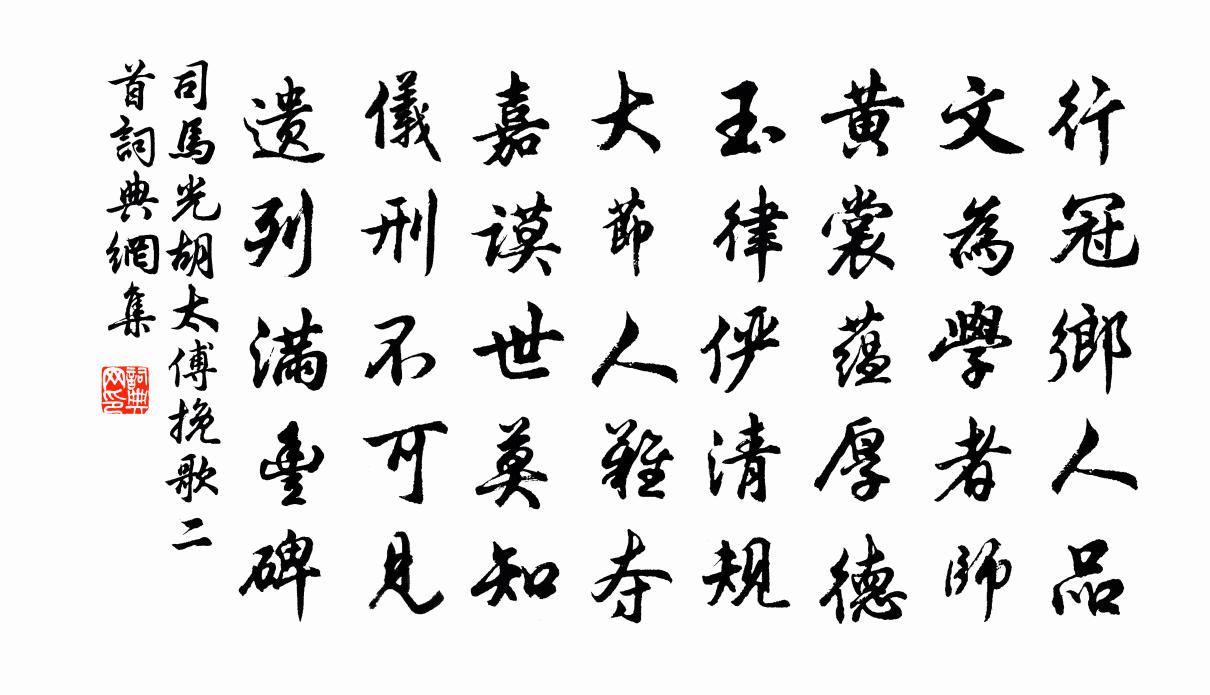 行冠鄉人品
文為學者師
黃裳蘊厚德
玉律俨清規
大節人難夺
嘉謨世莫知
儀刑不可見
遗列满豊碑
司馬光胡太傅挽歌二
首詞典網集
詞典网印